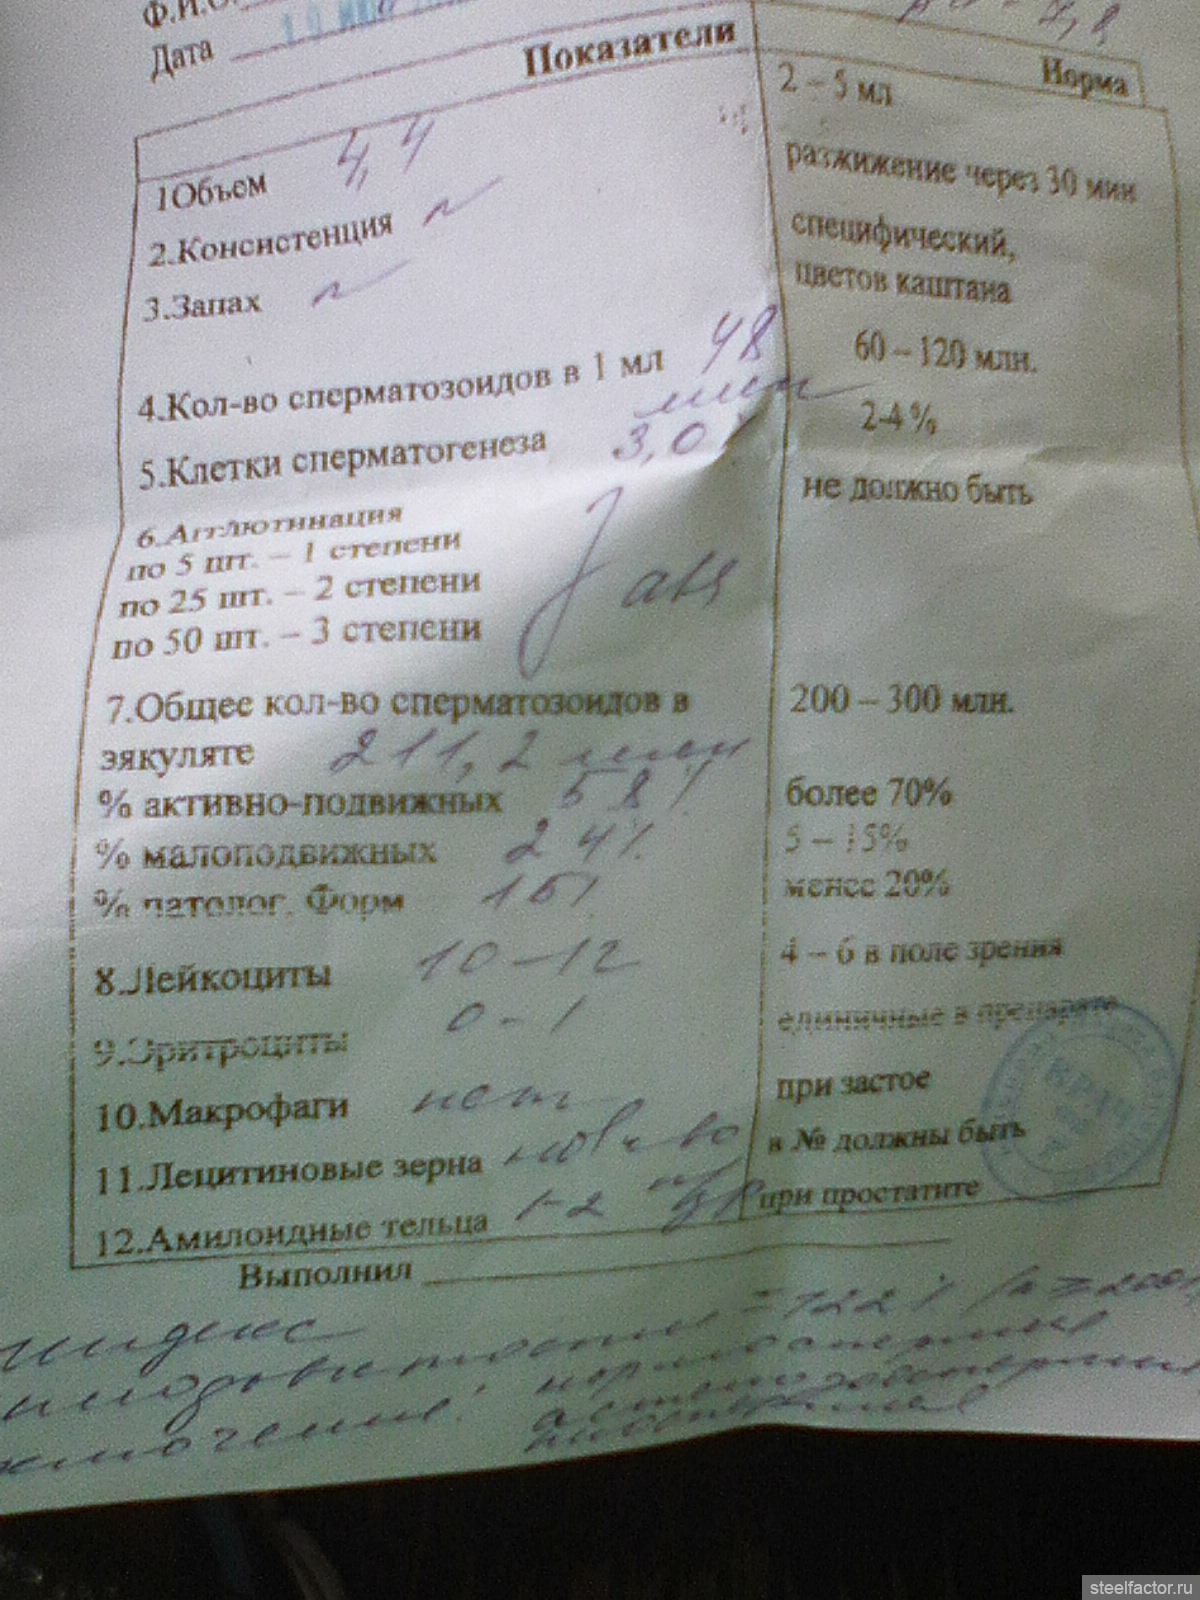 Ф.И.О.
Дата
Показатели
Норма
1Объем 4,4
2 – 5 мл
2.Консистенция N
разжижение через 30 мин
3.Запах N
специфический,
цветов каштана
4.Кол-во сперматозоидов в 1 мл 48 млн
60 – 120 млн.
5.Клетки сперматогенеза 3,0%
2-4%
6.Агглютинация
не должно быть
по 5 шт. – 1 степени
по 25 шт. – 2 степени
по 50 шт. – 3 степени
7.Общее кол-во сперматозоидов в
200 – 300 млн.
эякуляте 211,2 млн
% активно-подвижных 58%
более 70%
% малоподвижных 24%
5 – 15%
% патолог. Форм
менее 20%
8.Лейкоциты 10-12
4 – 6 в поле зрения
9.Эритроциты 0-1
единичные в препарате
10.Макрофаги нет
при застое
11.Лецитиновые зерна
в № должны быть
12.Амилоидные тельца 1-2
при простатите
ВРАЧ
Выполнил
индекс
= 122%
нормоспермия
steelfactor.ru